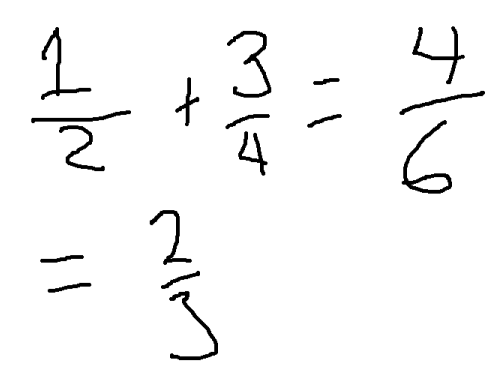 1/2 + 3/4 = 4/6
= 2/3